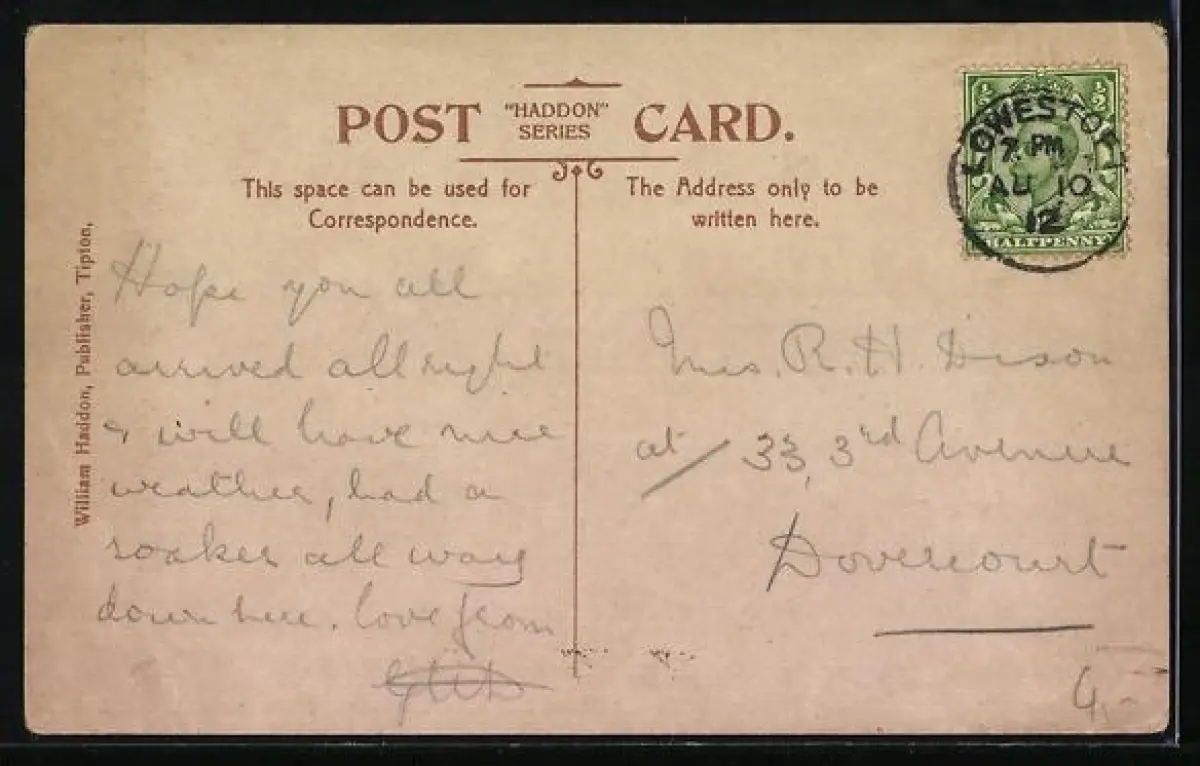 POST "HADDON" SERIES CARD.
This space can be used for
Correspondence.
The Address only to be
written here.
William Haddon, Publisher, Tipton,
½ ½
HALFPENNY
LOWESTOFT
7. PM
AU 10
12
Hope you all
arrived all right
& will have nice
weather, had a
soaker all way
down here. love from
Mrs. R. H. Dixon
at / 33, 3rd Avenue
Dovercourt
4,-